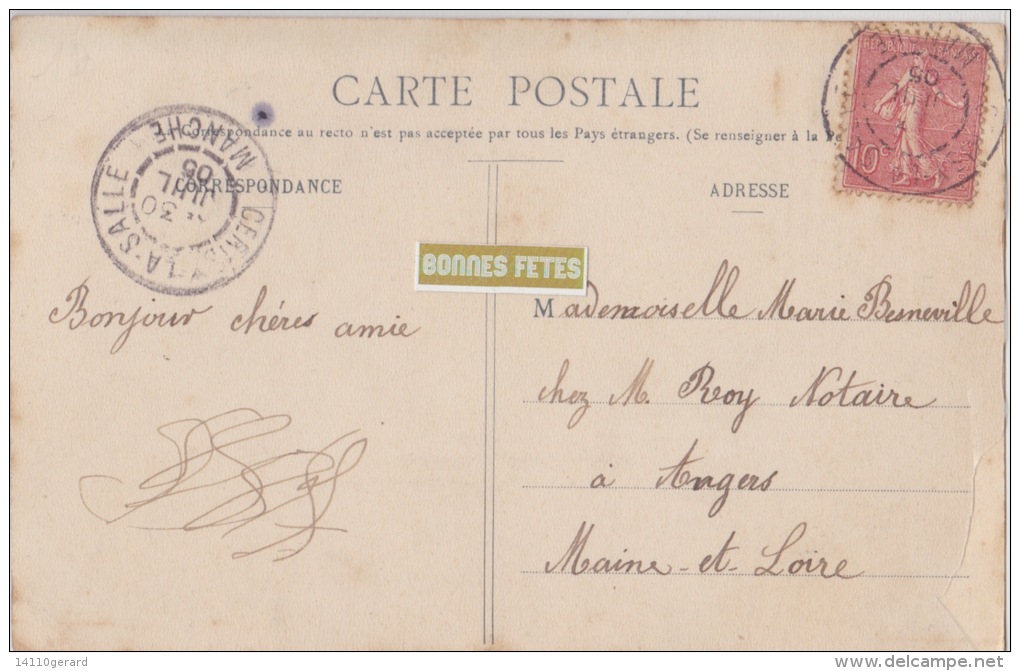 CARTE POSTALE
La Correspondance au recto n'est pas acceptée par tous les Pays étrangers. (Se renseigner à la
CORRESPONDANCE
ADRESSE
REPUBLIQUE FRANÇAISE
10c
LA-SALLE
MANCHE
30
JUIL
05
05
BONNES FETES
Bonjour chéres amie
Mademoiselle Marie Besneville
chez M. Roy Notaire
à Angers
Maine-et-Loire
14110gerard
www.delcampe.net